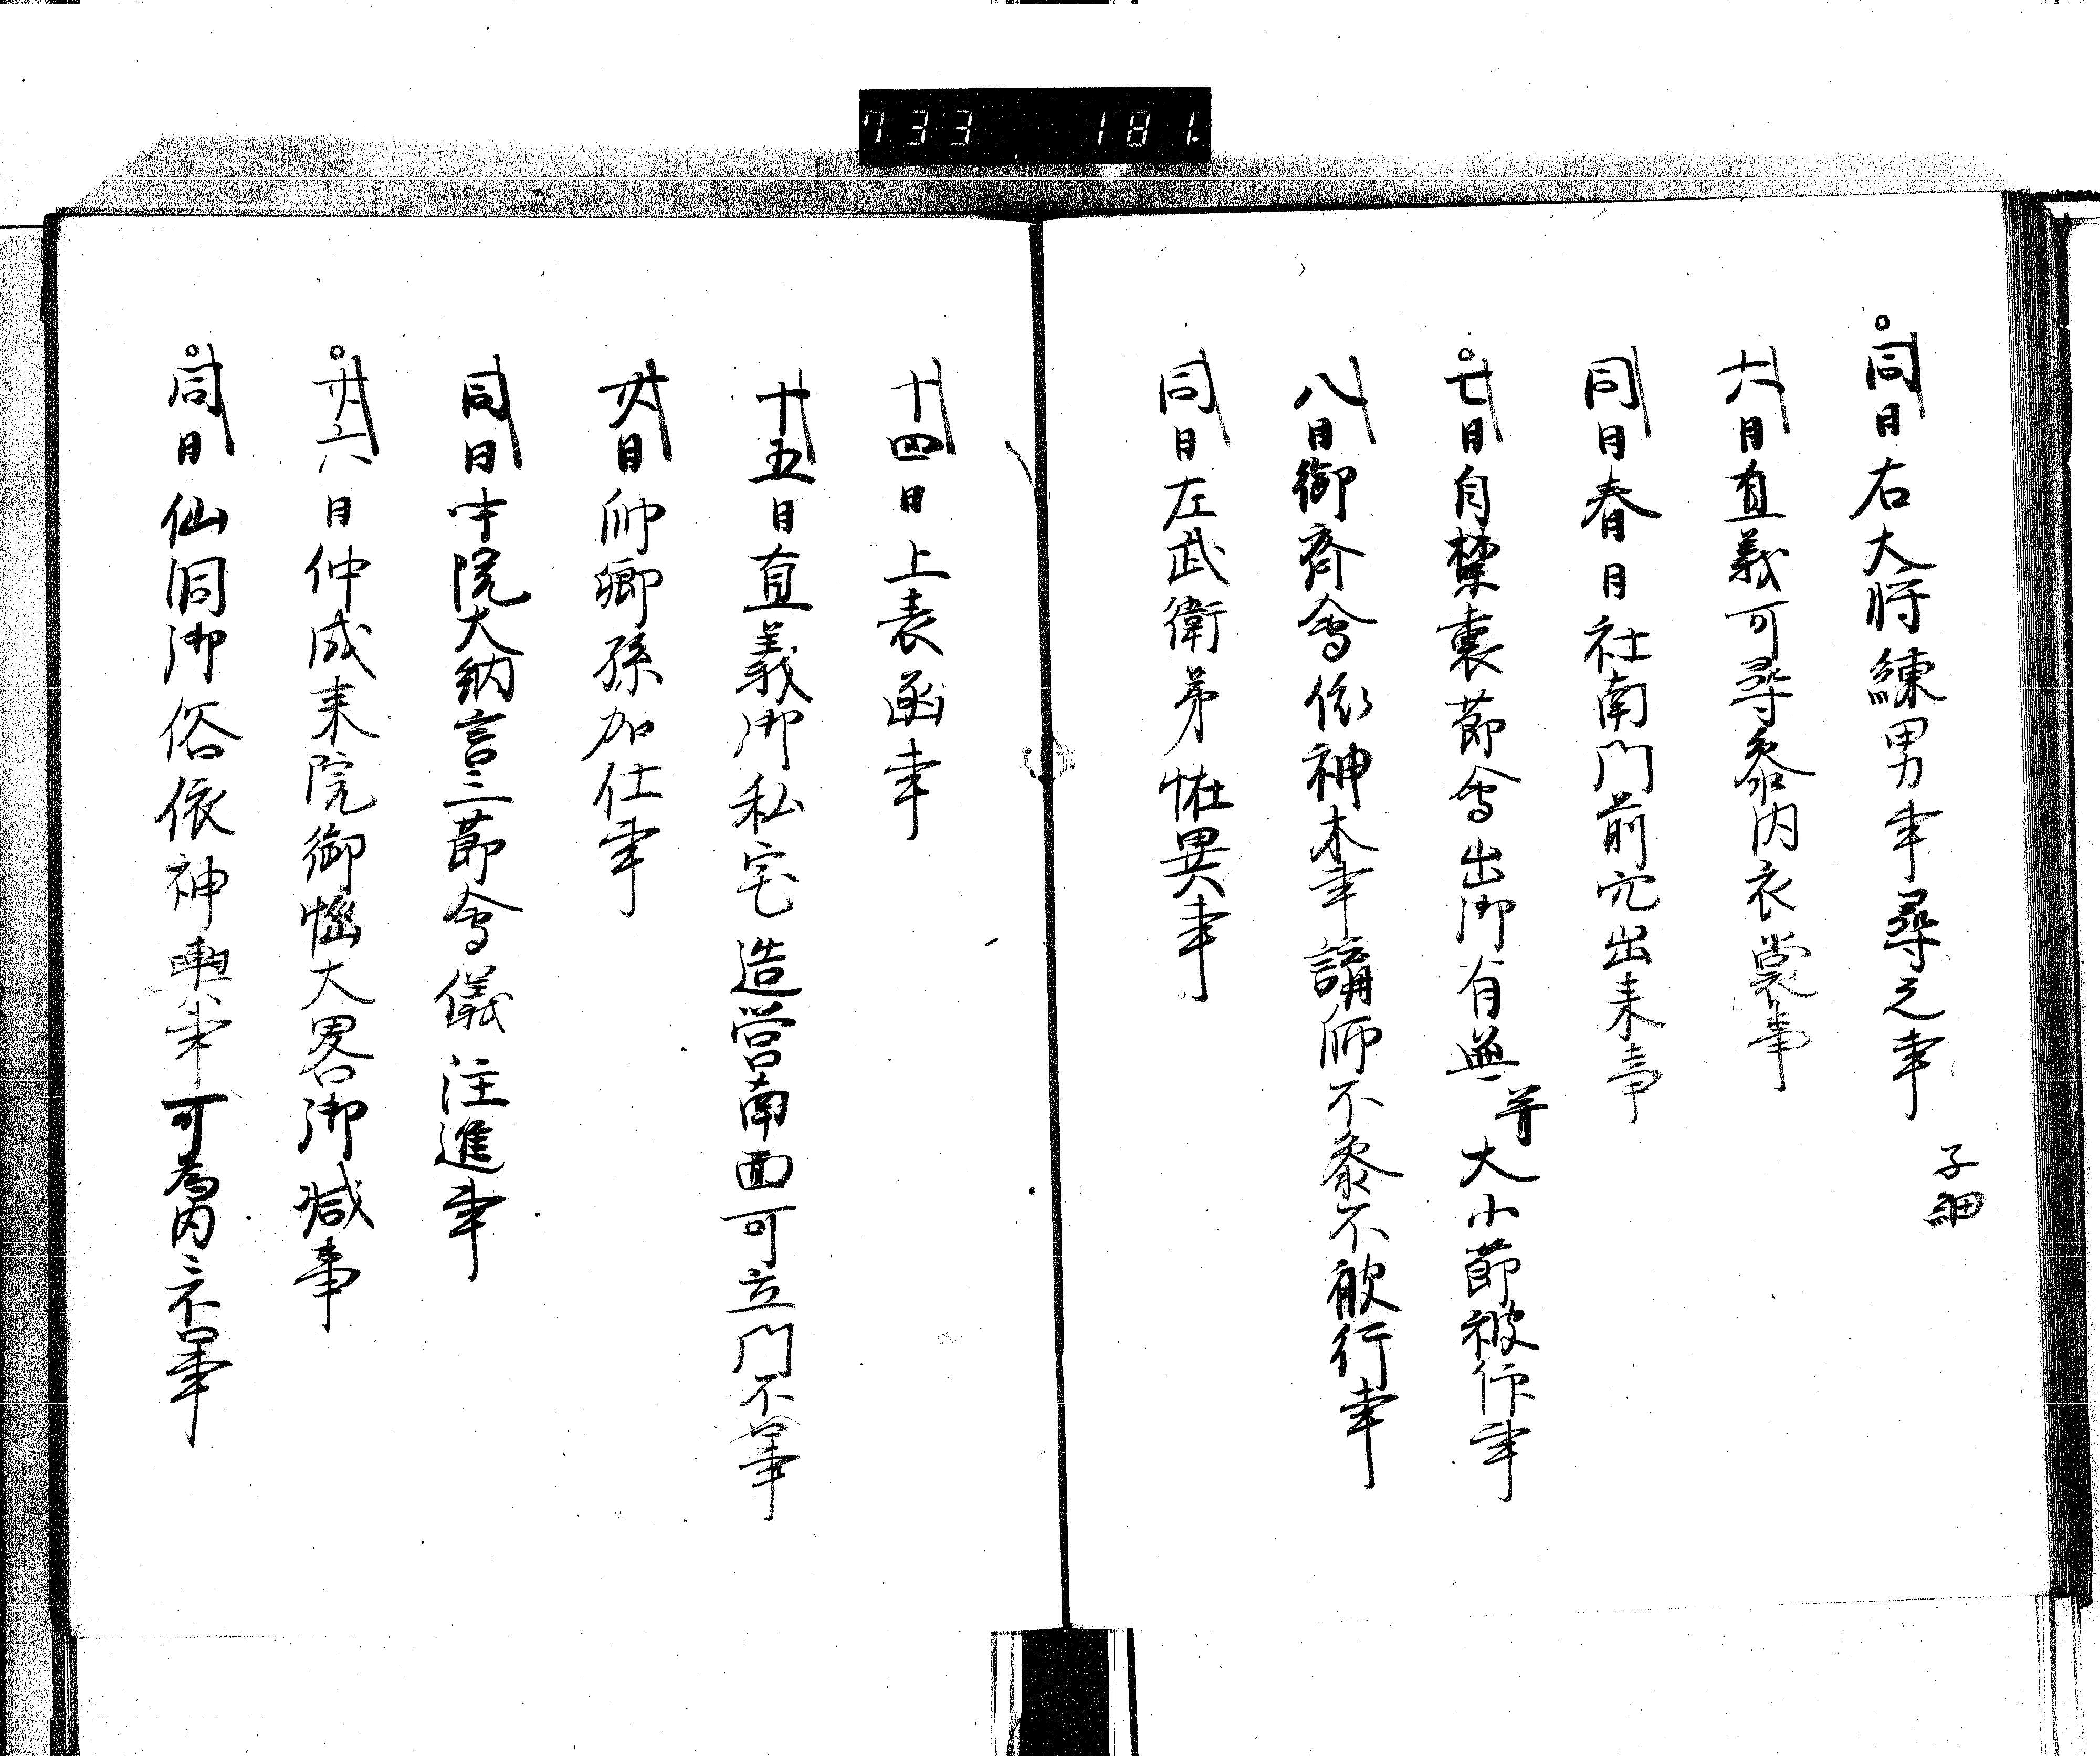 733 181
同日右大将練男事尋之事子細
六日直義可尋参内衣裳事
同日春日社南門前穴出来事
七日自禁裏節會出御有無并大小節被行事
八日御斎會依神木事講師不参不被行事
同日左武衛弟恠異事
十四日上表函事
十五日直義卿私宅造営南面可立門不事
廿日帥卿孫加仕事
同日中院大納言三節會儀注進事
廿六日仲成来院御悩大畧御減事
同日仙洞御俗依神輿事可為内々不事